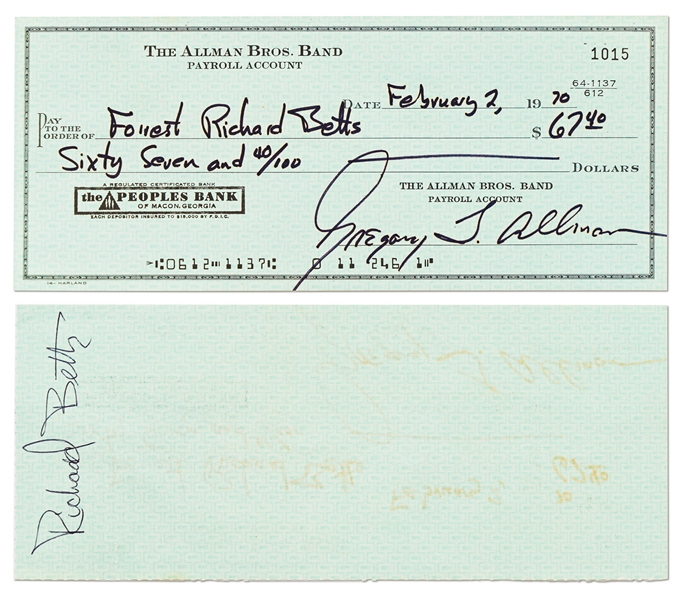 THE ALLMAN BROS. BAND
PAYROLL ACCOUNT
1015
64-1137
612
DATE February 2, 19 70
PAY TO THE ORDER OF Forrest Richard Betts $ 67 40
Sixty Seven and 40/100 DOLLARS
A REGULATED CERTIFICATED BANK
the PEOPLES BANK
OF MACON, GEORGIA
EACH DEPOSITOR INSURED TO $15,000 BY F.D.I.C.
THE ALLMAN BROS. BAND
PAYROLL ACCOUNT
Gregory L. Allman
⑆0612⑉1137⑆ 0 11 246 1⑈
HARLAND
Richard Betts